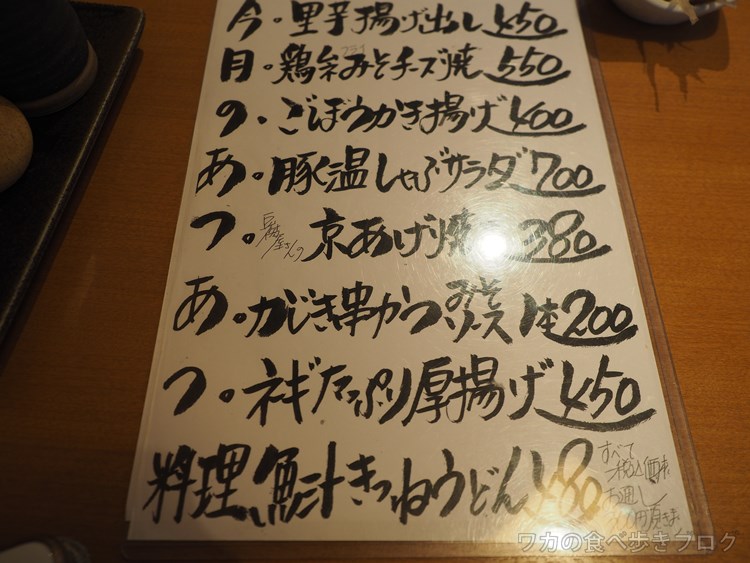 今。里芋揚げ出し 450
月。鶏ささみそチーズ焼 550
の。ごぼうかき揚げ 400
あ。豚温しゃぶサラダ 700
つ。豆腐屋さんの 京あげ焼 380
あ。かじき串かつ みそソース 1本 200
つ。ネギたっぷり厚揚げ 450
料理 魚汁きつねうどん 480
すべて
税込価格
お通し
頂きます
ワカの食べ歩きブログ